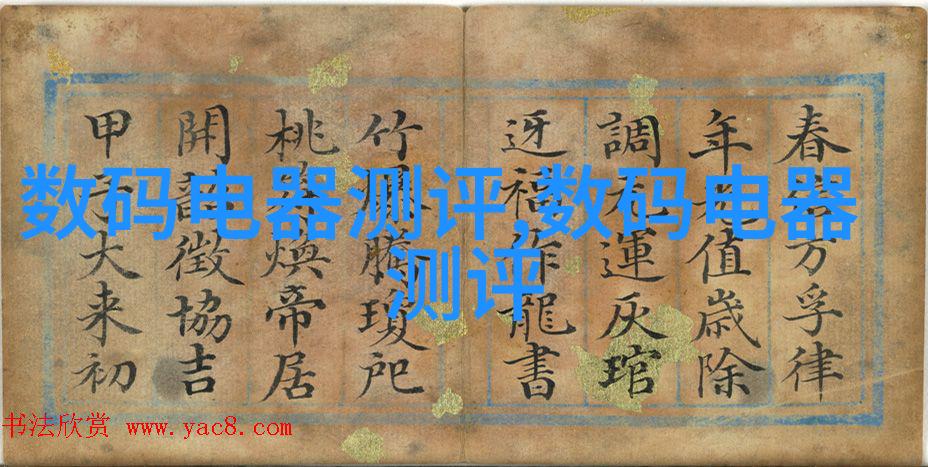 春方孚律
年值歳除
調元運灰琯
迓福作龍書
竹瓊
桃煥帝居
開韶徵協吉
甲子大来初
数码电器测评,数码电器
测评
书法欣赏 www.yac8.com